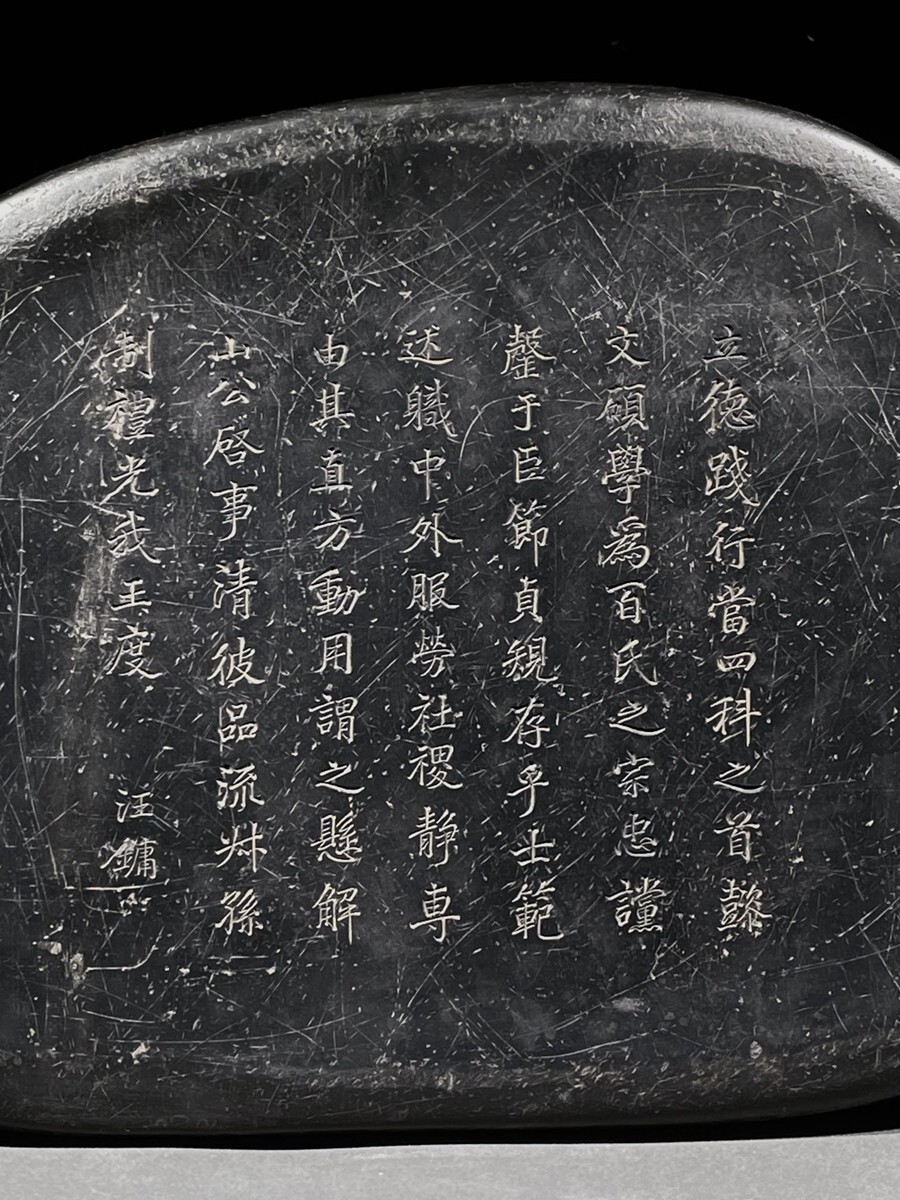 立徳踐行當四科之首懿
文碩學爲百氏之宗忠讜
罄于臣節貞規存乎士範
述職中外服勞社稷静専
由其直方動用謂之懸解
山公啓事清彼品流叔孫
制禮光我王度
汪鏞